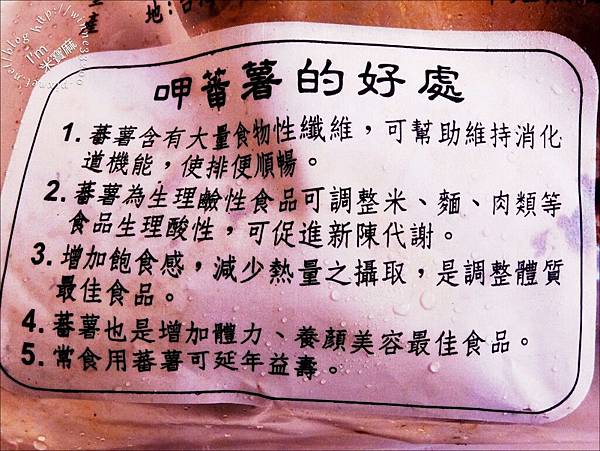 地:台
產
I'm
米寶麻
呷蕃薯的好處
1. 蕃薯含有大量食物性纖維，可幫助維持消化
道機能，使排便順暢。
2. 蕃薯為生理鹼性食品可調整米、麵、肉類等
食品生理酸性，可促進新陳代謝。
3. 增加飽食感，減少熱量之攝取，是調整體質
最佳食品。
4. 蕃薯也是增加體力、養顏美容最佳食品。
5. 常食用蕃薯可延年益壽。